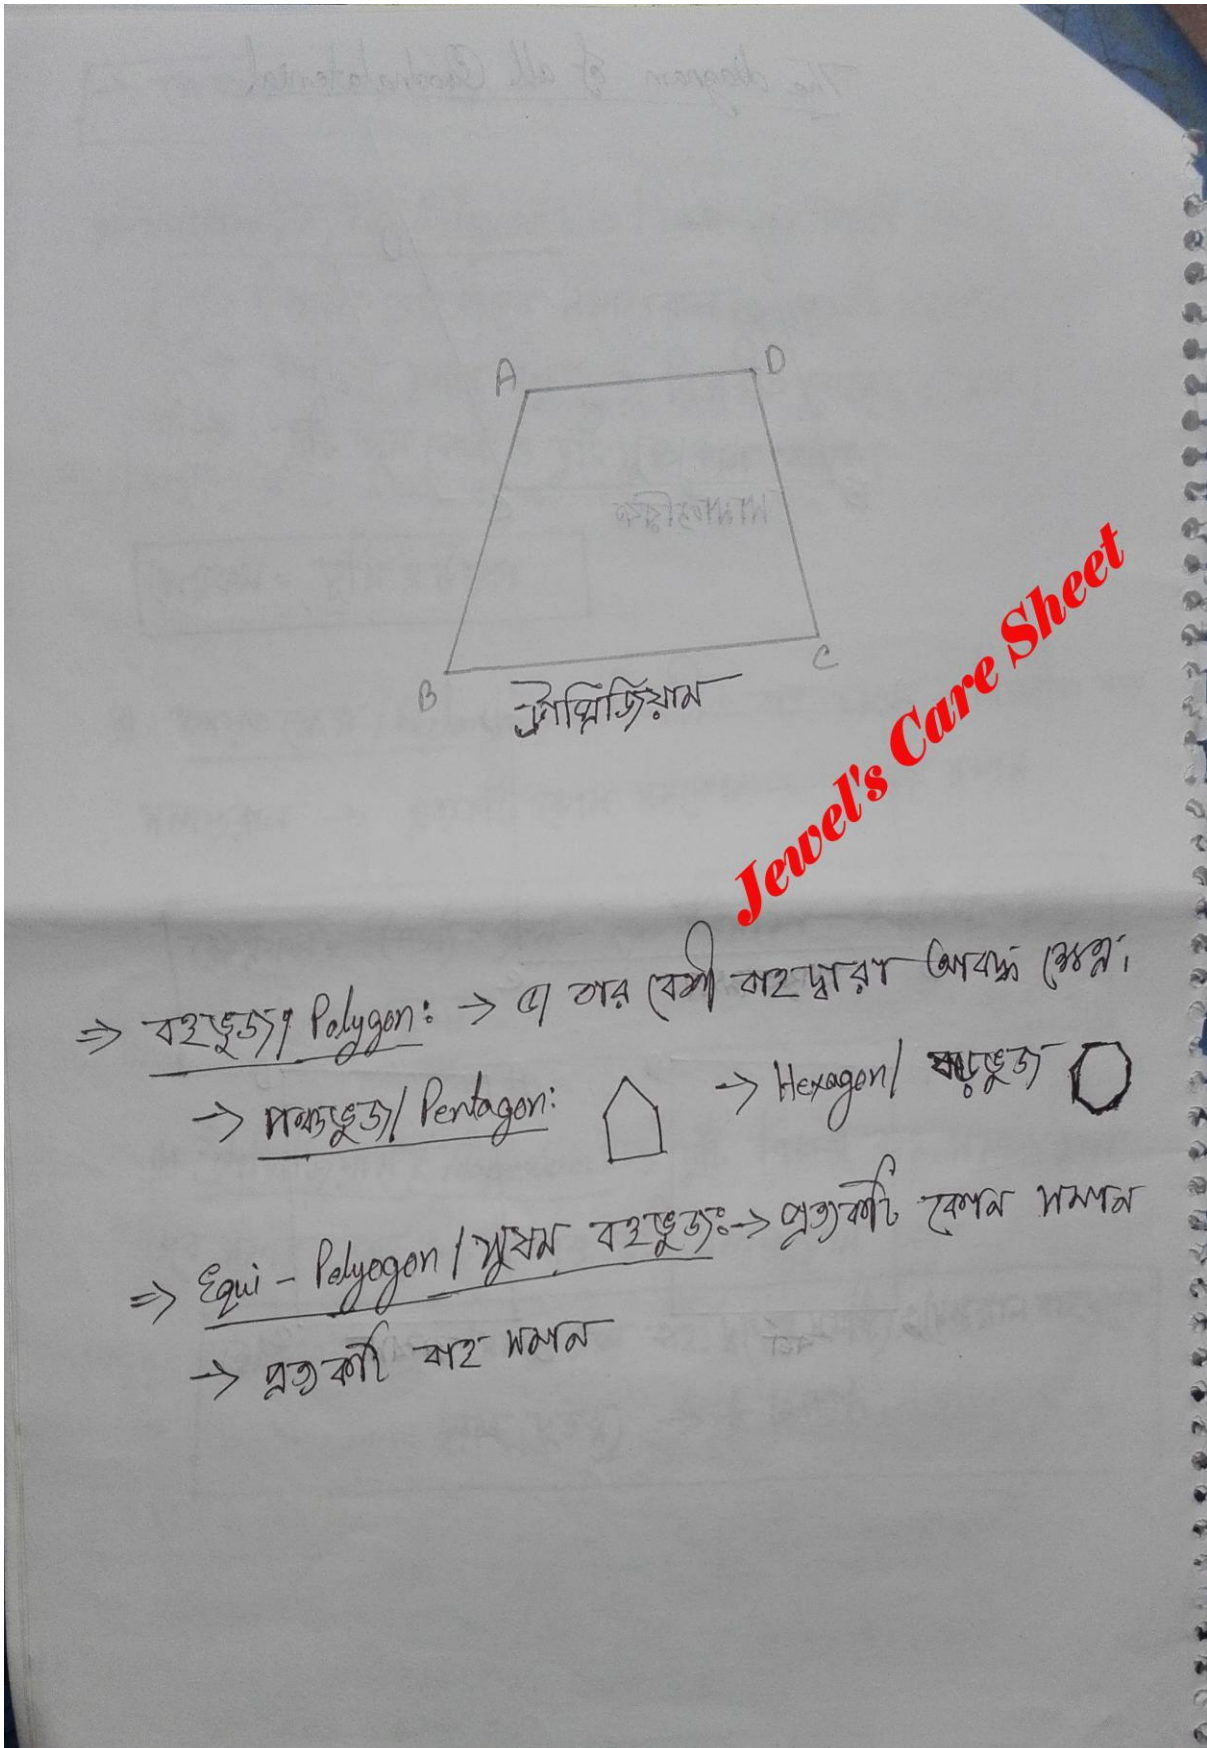 A D
B C
ট্রাপিজিয়াম
Jewel's Care Sheet
⇒ বহুভুজ/ Polygon: → ৫/ তার বেশী বাহুদ্বারা আবদ্ধ ক্ষেত্র।
→ পঞ্চভুজ/ Pentagon: → Hexagon/ ষড়ভুজ
⇒ Equi - Polyogon / সুষম বহুভুজঃ→ প্রত্যকটি কোন সমান
→ প্রত্যকটি বাহু সমান